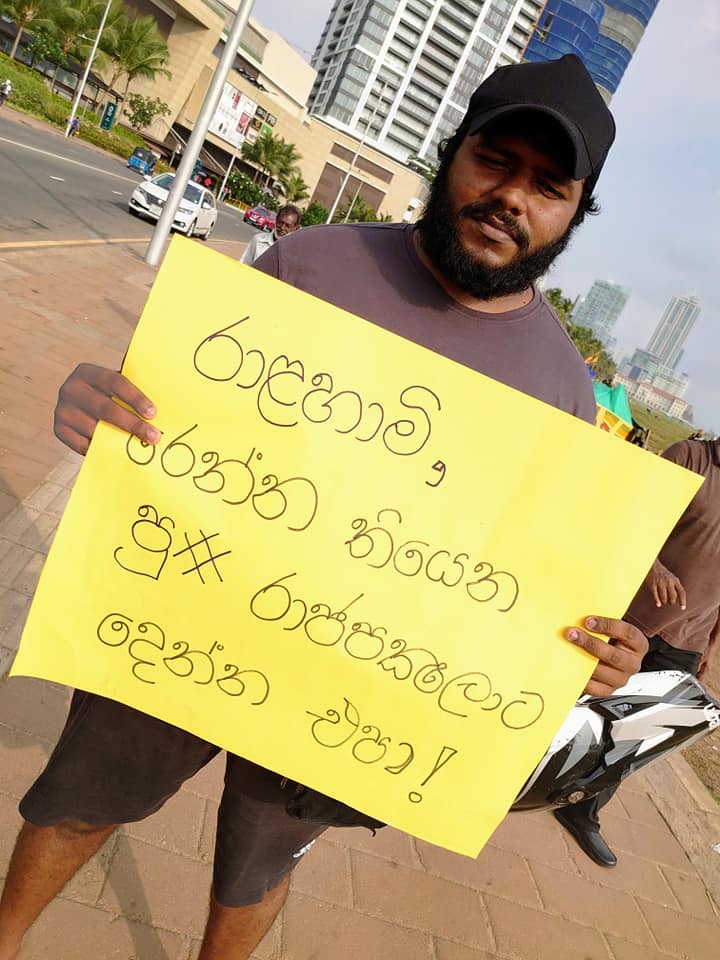 රාළහාමි,
රෙන්න තියෙන
පු※ රාජපක්ෂලාට
දෙන්න එපා!